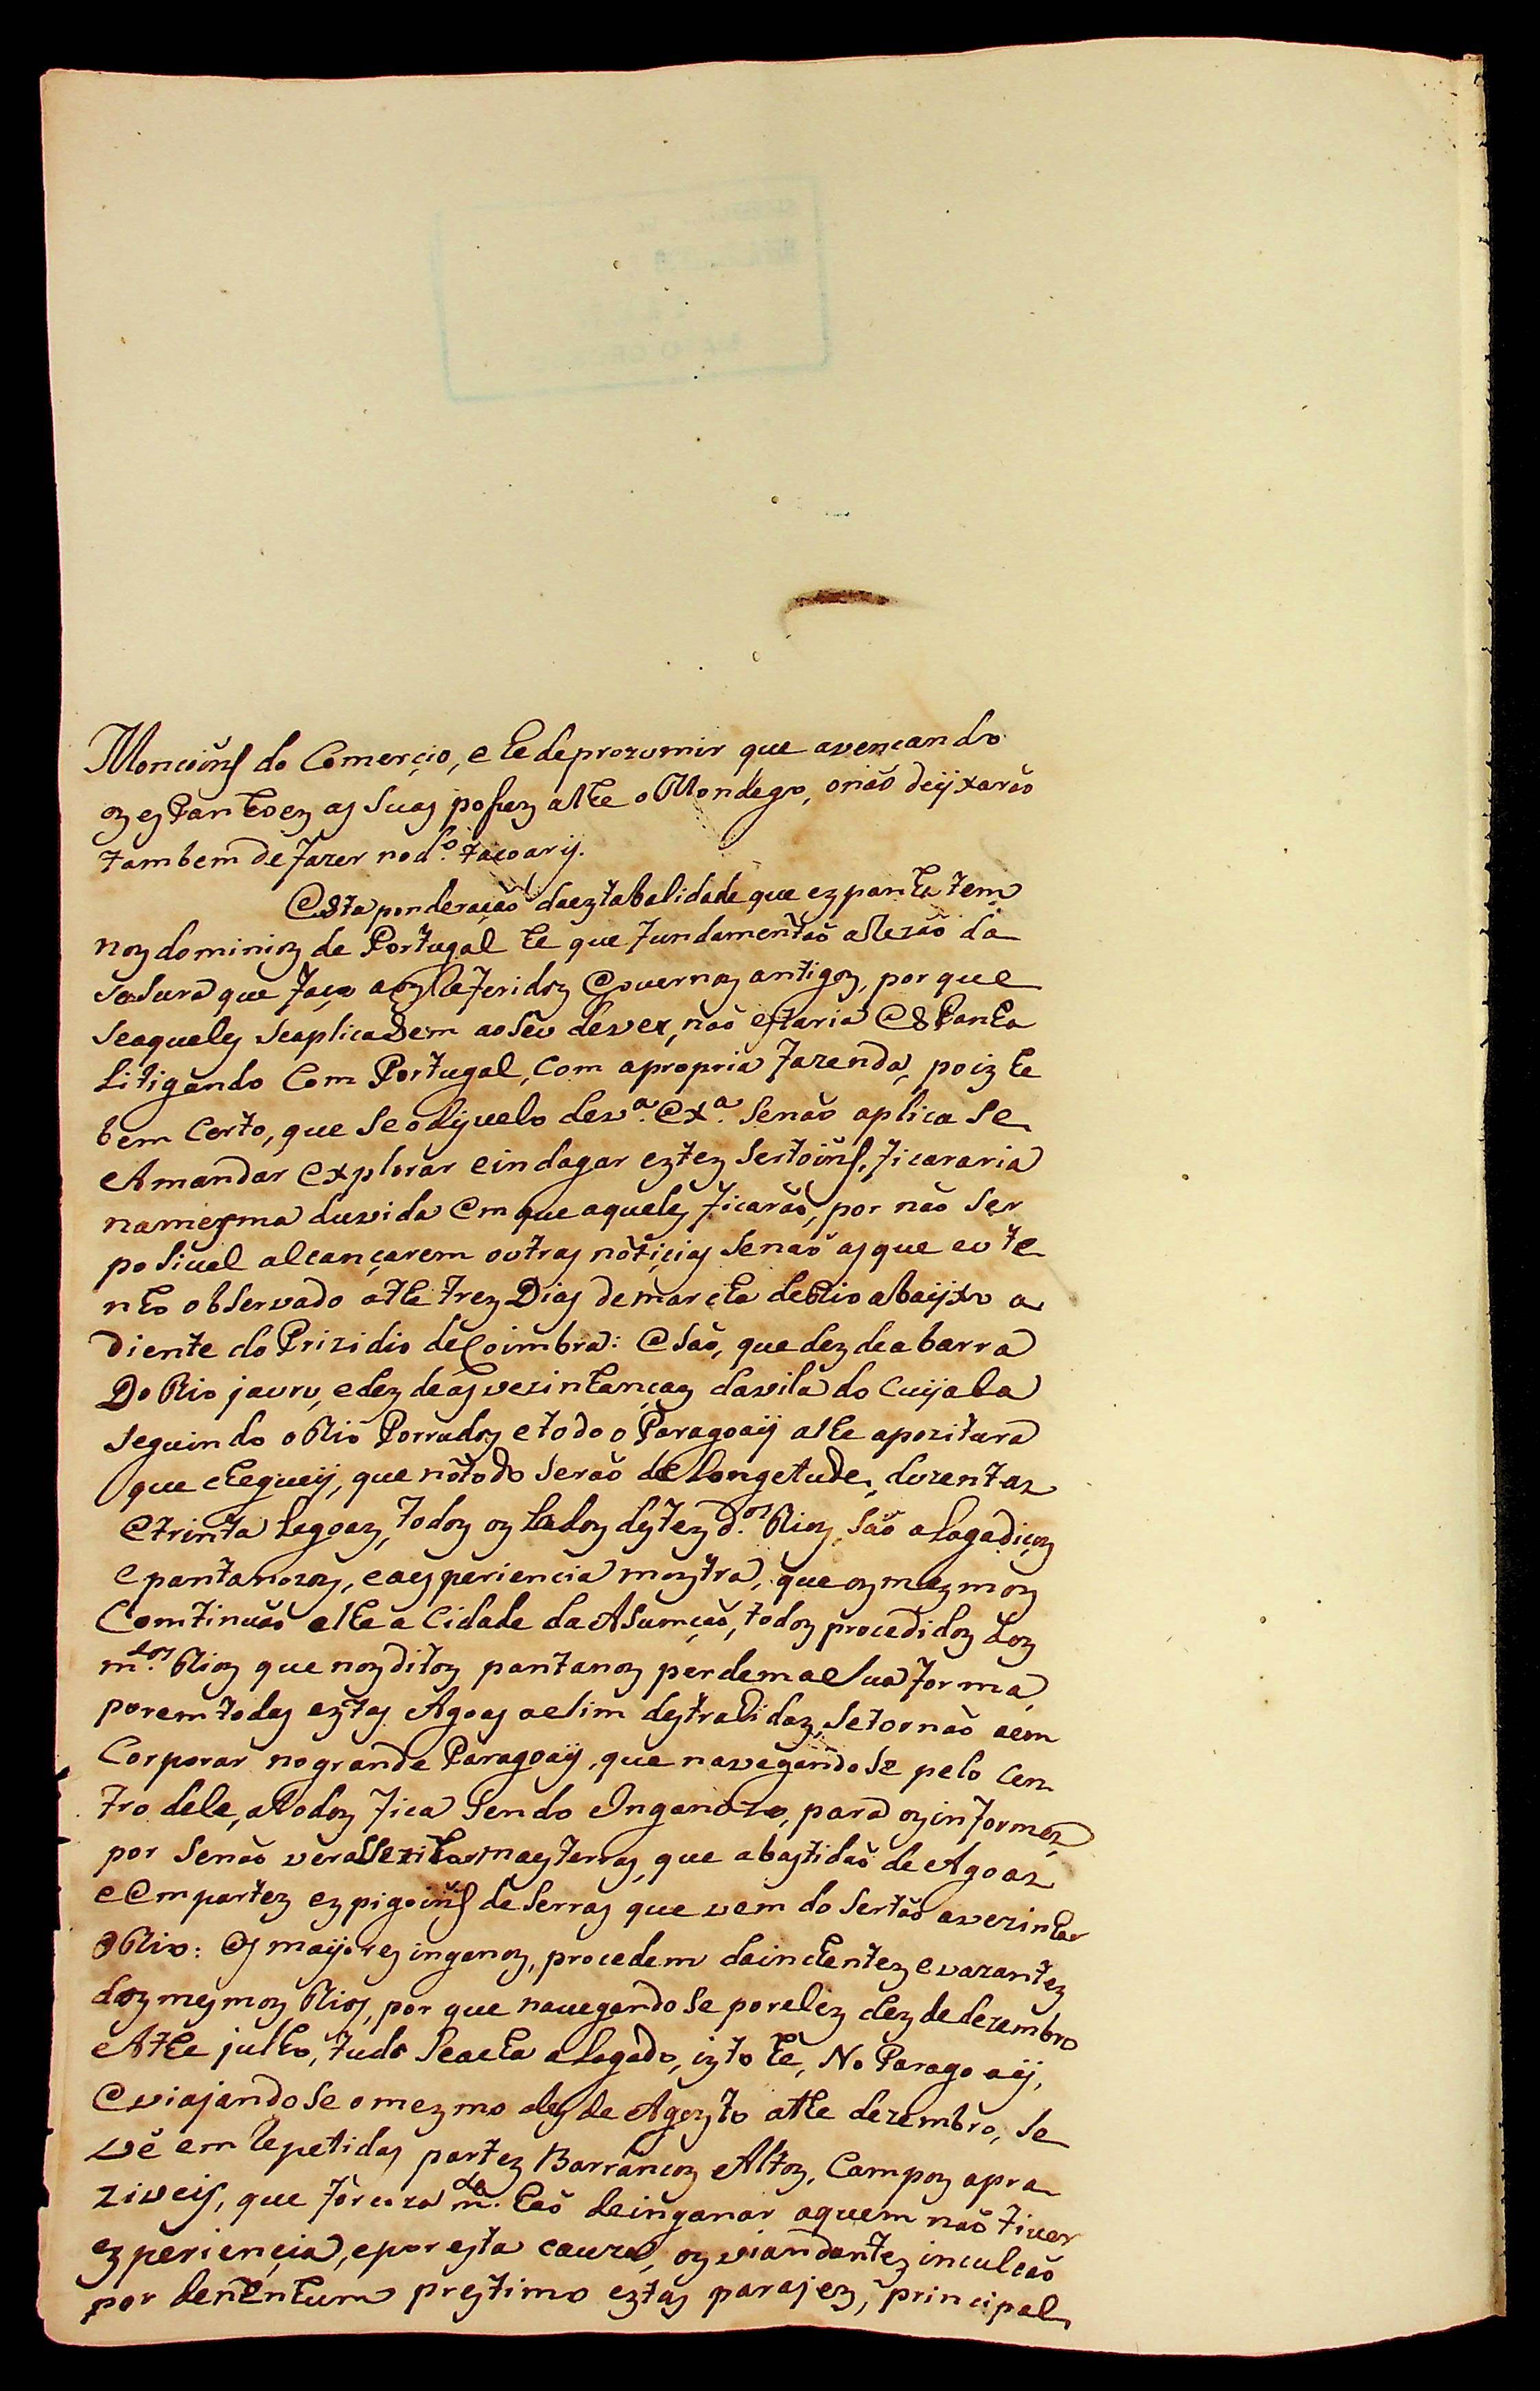 Moncoins do Comerçio, e he de prozumir que avençando
oz espanhoez as suas posez athe o Mondego, o não deijxarão
tambem de fazer no d.º tacoarij.
Esta ponderação da eztabalidade que ezpanha tem
noz dominioz de Portugal he que fundamentão a Rezão da
sesura que faço aoz Referidoz Governoz antigoz, por que
se aqueles se aplicasem ao seu dever, não estaria Espanha
Litigando Com Portugal, Com a propria fazenda, poiz he
bem Certo, que se o disvelo de v.ª Ex.ª se não aplica se
A mandar Explorar e indagar eztez sertoins, ficararia
na mesma duvida Em que aqueles ficarão, por não ser
posivel alcançarem outras notiçias senão as que eu te
nho observado athe trez Dias de marcha de Rio abaijxo a
diente do Prizidio de Coimbra: E são, que dez de a barra
Do Rio jauru, e dez de as vezinhançaz da vila do Cuijaba
seguindo o Rio Porrudoz e todo o Paragoaij athe a pozitura
que chegueij, que no todo serão de Longetude, duzentaz
E trinta Legoaz, todoz oz Ladoz destez d.os Rioz são alagadiçoz
e pantanozoz, e a esperiencia moztra, que oz mezmoz
Comtinuão athe a Cidade da Asumção, todoz procedidoz doz
m.mos Rioz que noz ditoz pantanoz perdem a sua forma,
porem todas eztas Agoas asim destrahidaz, se tornão a em
Corporar no grande Paragoaij, que navegando se pelo Cen
tro dele, a todoz fica sendo Enganozo, para oz informez,
por se não ver a Rezistar mas terras, que abastidão de Agoaz
e Em partez ezpigoins de serras que vem do sertão avezinhar
o Rio: Os maijorez inganoz, procedem da inchentez e vazantez
doz mesmoz Rios, por que navegando se por elez dez de dezembro
Athe julho, tudo se acha alagado, izto he, No Paragoaij,
E viajando se o mezmo dez de Agozto athe dezembro, se
vê em Repetidas partez Barrancoz Altoz, Campoz apra
ziveis, que forcoza m.de hão de inganar a quem não tiver
ezperiençia, e por esta cauza, oz viandantez inculcão
por de nenhum prestimo eztas parajez, principal